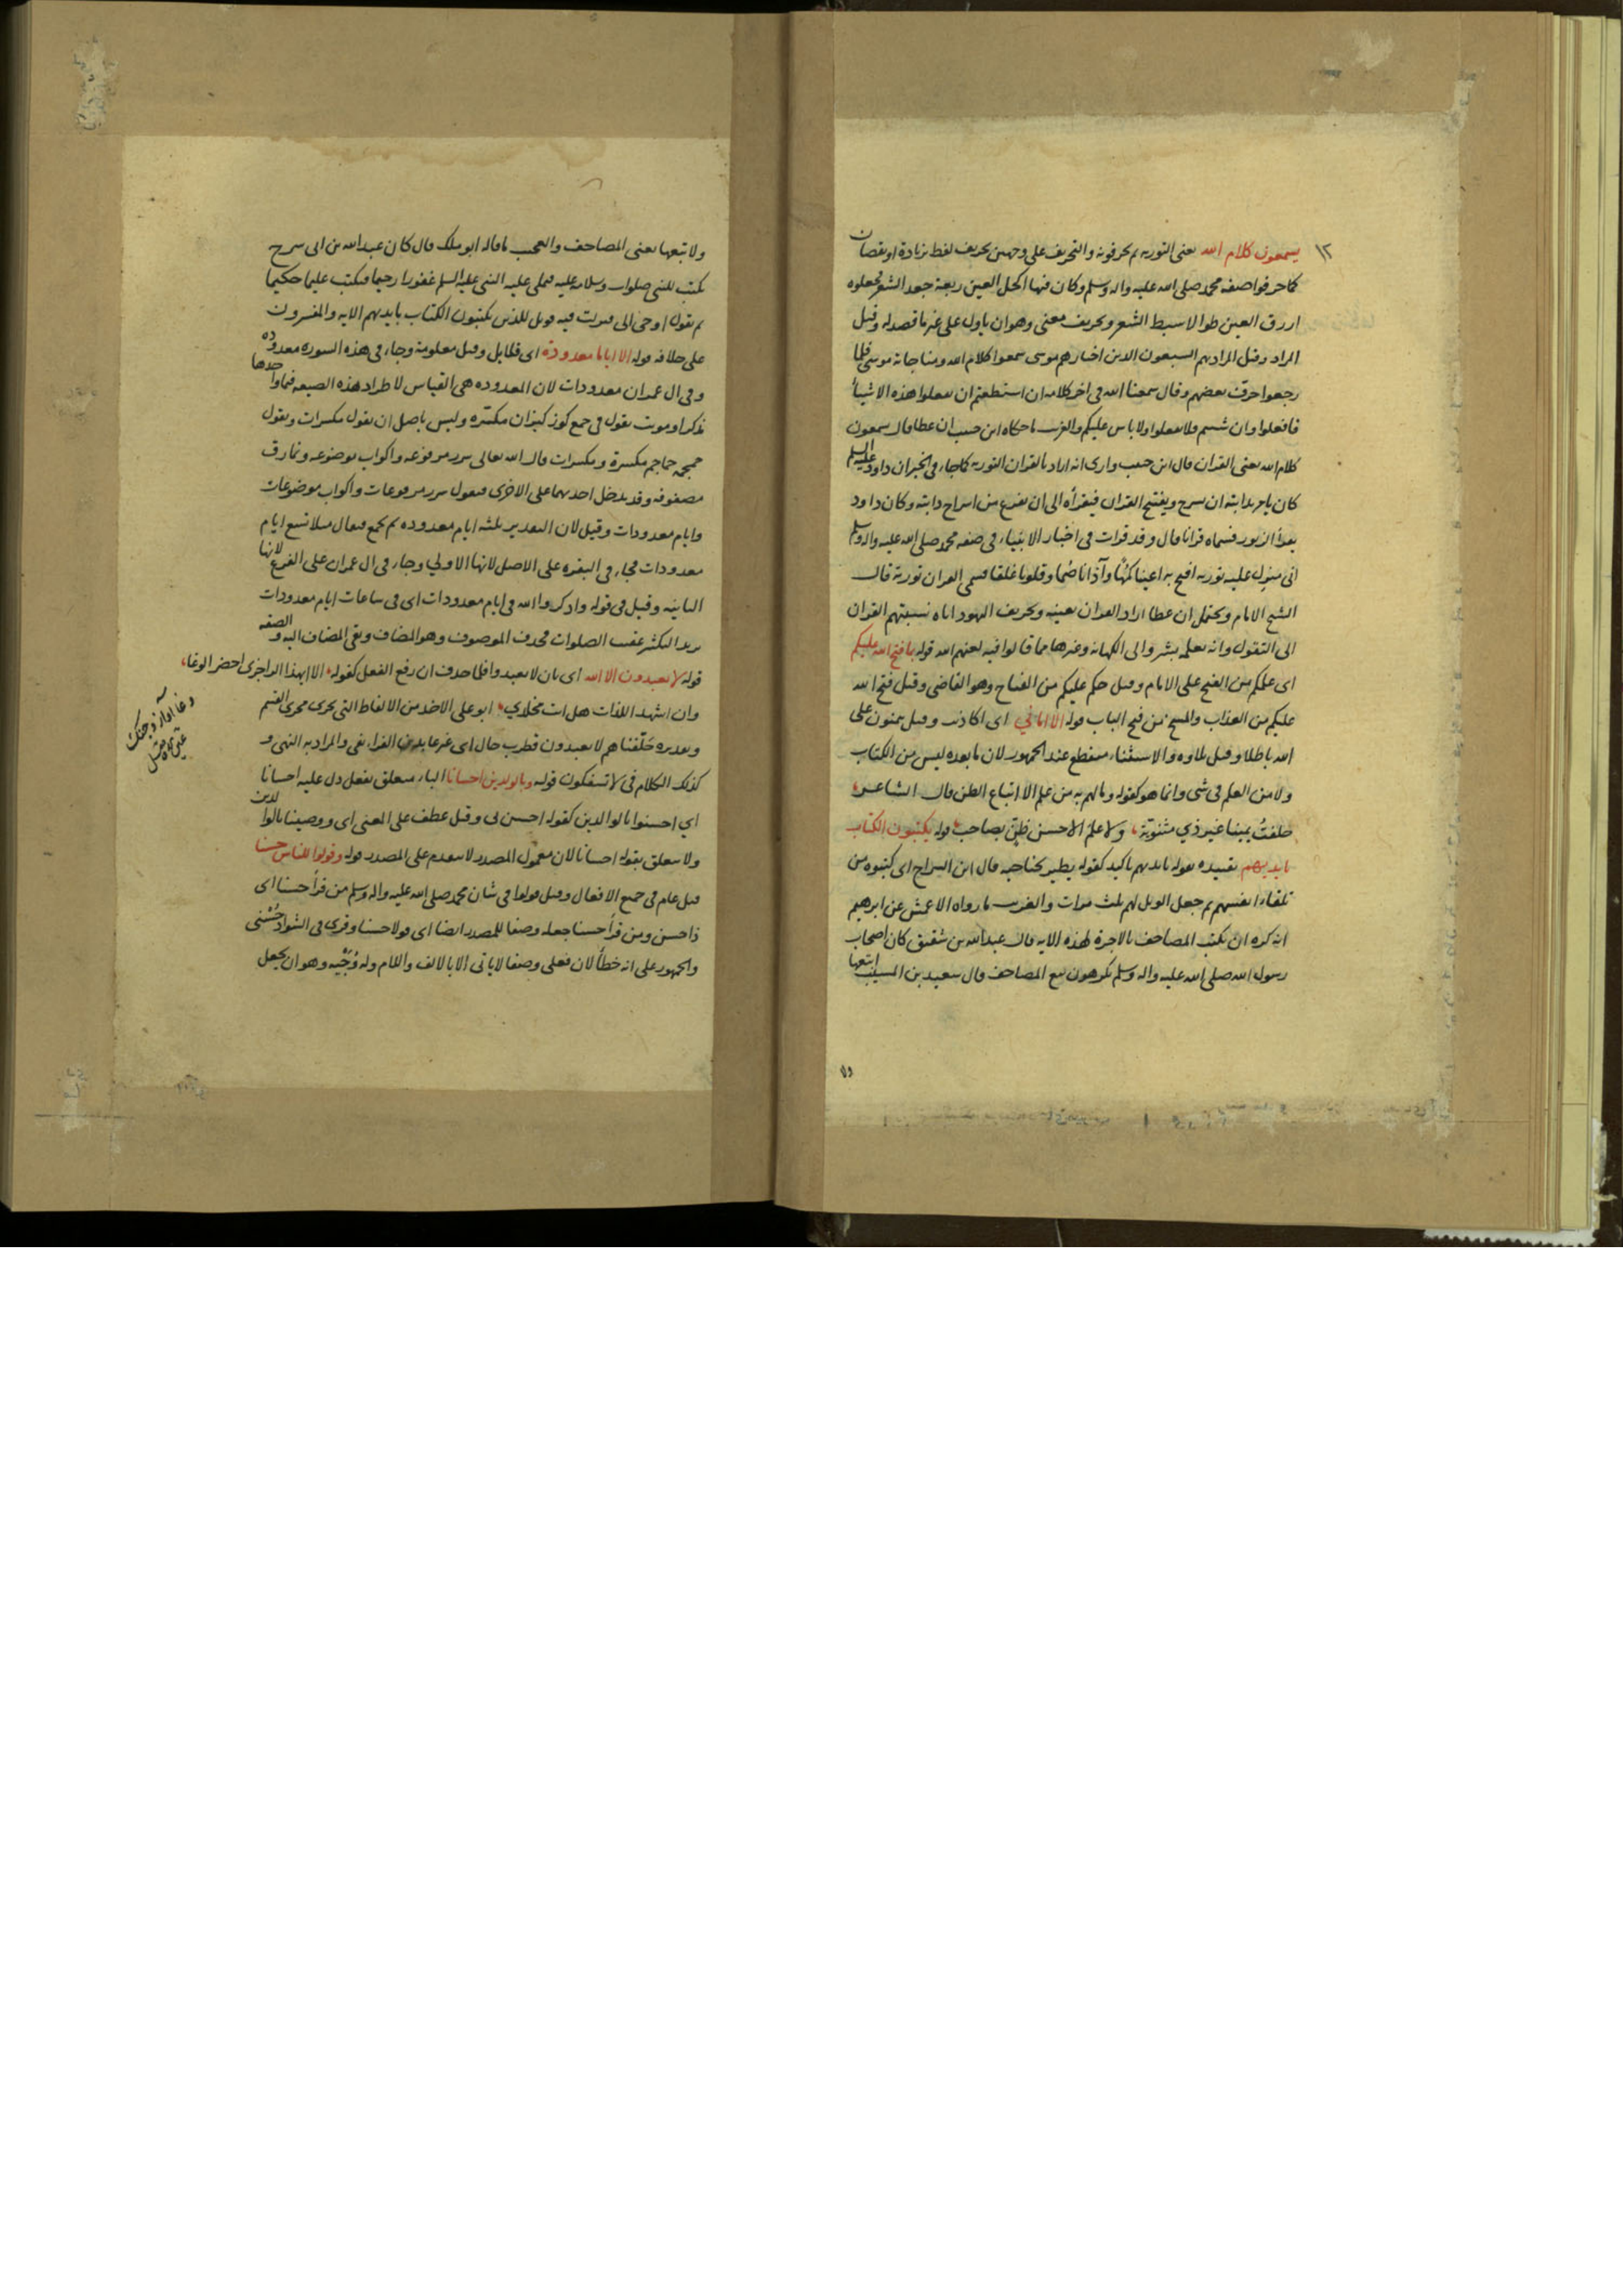 ١٢
يسمعون كلام الله يعنى التوريه ثم يحرفونه والتحريف على وجهين تحريف لفظ بزيادة او نقصان
كما حرفوا صفه محمد صلى الله عليه واله وسلم وكان فيها اكحل العين ربعة جعد الشعر فجعلوه
ازرق العين طوالا سبط الشعر وتحريف معنى وهو ان ياول على غير ما قصد له وقيل
المراد وقيل المراد بهم السبعون الذين اختارهم موسى سمعوا كلام الله ومناجاته موسى فلما
رجعوا حرف بعضهم وقال سمعنا الله فى اخر كلامه ان استطعتم ان تفعلوا هذه الاشيأ
فافعلوا وان شئتم فلا تفعلوا ولا باس عليكم والغريب ما حكاه ابن حبيب ان عطا قال يسمعون
كلام الله يعنى القران قال ابن حبيب وارى انه اراد بالقران التوريه كما جاء فى الخبر ان داود عليه السلم
كان يامر بدابته ان تسرج ويفتتح القران فيقرأه الى ان يفرغ من اسراج دابته وكان داود
يقرأ الزبور فسماه قرانا قال وقد قرات فى اخبار الانبياء فى صفه محمد صلى الله عليه واله وسلم
انى منزل عليه توريه افتح به اعينا كمها وآذانا صما وقلوبا غلفا فسمى القران تورية قال
الشيخ الامام ويحتمل ان عطا اراد القران بعينه وتحريف اليهود اياه نسبتهم القران
الى التقول وانه يعلمه بشر والى الكهانه وغيرها مما قالوا فيه لعنهم الله قوله بما فتح الله عليكم
اى علمكم من الفتح على الامام وقيل حكم عليكم من الفتاح وهو القاضى وقيل فتح الله
عليكم من العذاب والمسخ من فتح الباب قوله الا امانى اى اكاذيب وقيل يتمنون على
الله باطلا وقيل تلاوه والاستثناء منقطع عند الجمهور لان ما بعده ليس من الكتاب
ولا من العلم فى شى وانما هو كقوله وما لهم به من علم الا اتباع الظن قال الشاعر
حلفت يمينا غير ذي مثنوية ولا علم الا حسن ظن بصاحب قوله يكتبون الكتاب
بايديهم تقييده بقوله بايديهم تاكيد كقوله يطير بجناحيه قال ابن السراج اى كتبوه من
تلقاء انفسهم ثم جعل الويل لهم ثلث مرات والغريب ما رواه الاعمش عن ابرهيم
انه كره ان يكتب المصاحف بالاجرة لهذه الايه قال عبد الله بن شقيق كان اصحاب
رسول الله صلى الله عليه واله وسلم يكرهون بيع المصاحف قال سعيد بن المسيب ابتعها
ولا
ولا تبعها يعنى المصاحف والعجب ما قاله ابو ملك قال كان عبد الله بن ابى سرح
يكتب للنبى صلوات وسلامه عليه فيملى عليه النبى عليه السلم غفورا رحيما فيكتب عليما حكيما
ثم يقول اوحى الى فنزلت فيه فويل للذين يكتبون الكتاب بايديهم الايه والمفسرون
على خلافه قوله الا اياما معدودة اى قلايل وقيل معلومة وجاء فى هذه السوره معدوده
وفى ال عمران معدودات لان المعدوده هى القياس لاطراد هذه الصيغه فيما واحدها
مذكر او مونث تقول فى جمع كوز كيزان مكسره وليس باصل ان تقول مكسرات وتقول
جمجمه جماجم مكسرة ومكسرات قال الله تعالى سرر مرفوعه واكواب موضوعه ونمارق
مصفوفه وقد يدخل احديهما على الاخرى فيقول سرر مرفوعات واكواب موضوعات
وايام معدودات وقيل لان التقدير ثلثه ايام معدوده ثم يجمع فيقال مثلا تسع ايام
معدودات فجاء فى البقره على الاصل لانها الاولي وجاء فى ال عمران على الفرع لانها
الثانيه وقيل فى قوله واذكروا الله فى ايام معدودات اى فى ساعات ايام معدودات
يريد التكبير عقيب الصلوات فحذف الموصوف وهو المضاف وبقى المضاف اليه والصفه
قوله لا تعبدون الا الله اى بان لا تعبدوا فلما حذف ان رفع الفعل كقوله الا ايهذا الزاجرى احضر الوغا
وان اشهد اللذات هل انت مخلدي ابو على الاخذ من الالفاظ التى تجرى مجرى القسم
وتقديره حلفناهم لا يعبدون قطرب حال اى غير عابدين الفراء نفى والمراد به النهى و
كذلك الكلام فى لا تسفكون قوله وبالوالدين احسانا الباء متعلق بفعل دل عليه احسانا
اي احسنوا بالوالدين كقوله احسن بى وقيل عطف على المعنى اى ووصينا بالوالدين
ولا يتعلق بقوله احسانا لان معمول المصدر لا يتقدم على المصدر قوله وقولوا للناس حسنا
قيل عام فى جميع الافعال وقيل قولوا فى شان محمد صلى الله عليه واله وسلم من قرأ حسنا اى
ذا حسن ومن قرأ حسنا جعله وصفا للمصدر ايضا اى قولا حسنا وقرى فى الشواذ حسنى
والجمهور على انه خطأ لان فعلى وصفا لا ياتى الا بالالف واللام وله وجيه وهو ان يجعل